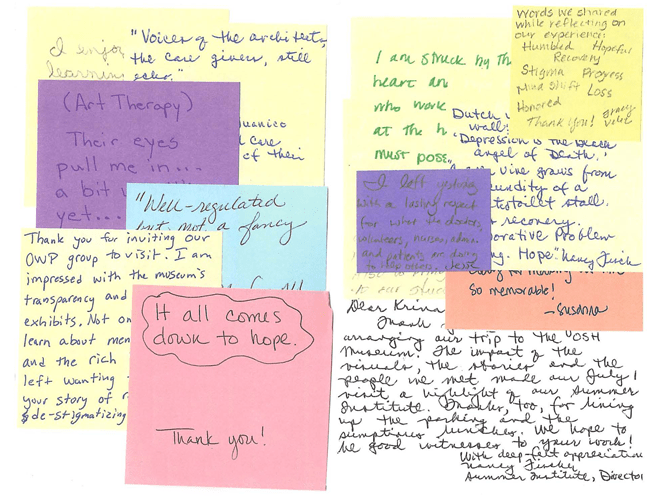 I enjoy
learning
"Voices of the architects,
the care givers, still
echo."
uanico
d care
of their
(Art Therapy)
Their eyes
pull me in...
a bit
yet...
"Well-regulated
but not a fancy
Thank you for inviting our
OWP group to visit. I am
impressed with the museum's
transparency and
exhibits. Not on
learn about men
and the rich
left wanting
your story of r
& de-stigmatizing
It all comes
down to hope.
Thank you!
I am struck by th
heart an
who work
at the h
must pose
Words we shared
while reflecting on
our experience:
Humbled Hopeful
Recovery
Stigma Progress
Mind Shift Loss
Honored
Thank you!
Dutch
wall:
'Depression is the Death
angel of Death.'
vine grows from
undity of a
toilet stall.
recovery.
orative Problem
Hope." Nancy Fisch
I left yesterday
with a lasting respect
for what the doctors,
volunteers, nurses, admin.
and patients are doing
so memorable!
-Susanna
Dear Krina
Thank
arranging our trip to the OSH
Museum. The impact of the
visuals, the stories and the
people we met made our July 1
visit a highlight of our Summer
Institute. Thanks, too, for lining
up the parking and the
sumptious lunches. We hope to
be good witnesses to your work!
With deep-felt appreciation
Nancy Fisch
Summer Institute, Director